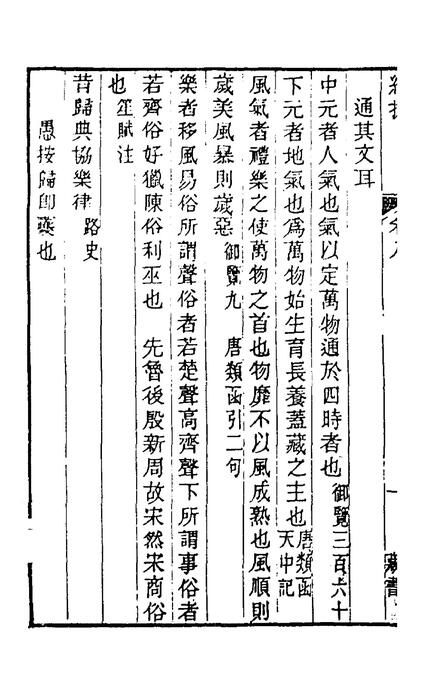 通其文耳
中元者人氣也氣以定萬物通於四時者也 御覽三百六十
下元者地氣也爲萬物始生育長養蓋藏之主也 唐類函 天中記
風氣者禮樂之使萬物之首也物靡不以風成熟也風順則
歲美風暴則歲惡 御覽九 唐類函引二句
樂者移風易俗所謂聲俗者若楚聲高齊聲下所謂事俗者
若齊俗好獵陳俗利巫也 先魯後殷新周故宋然宋商俗
也 笙賦注
昔歸典協樂律 路史
愚按歸卽夔也